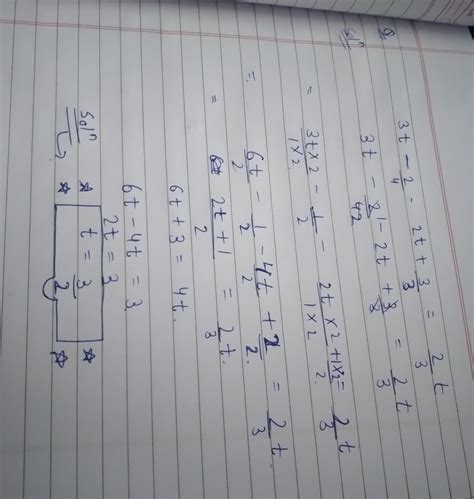 Q. 3t - 2/4 - 2t + 3/3 = 2/3 t
Solⁿ 3t - 2/4 - 2t + 3/3 = 2/3 t
= 3t×2/1×2 - 1/2 - 2t×2/1×2 + 1×2/2 = 2/3 t
= 6t/2 - 1/2 - 4t/2 + 2/2 = 2/3 t
= 2t+1/2 = 2/3 t.
6t + 3 = 4t.
6t - 4t = 3
2t = 3
Solⁿ t = 3/2